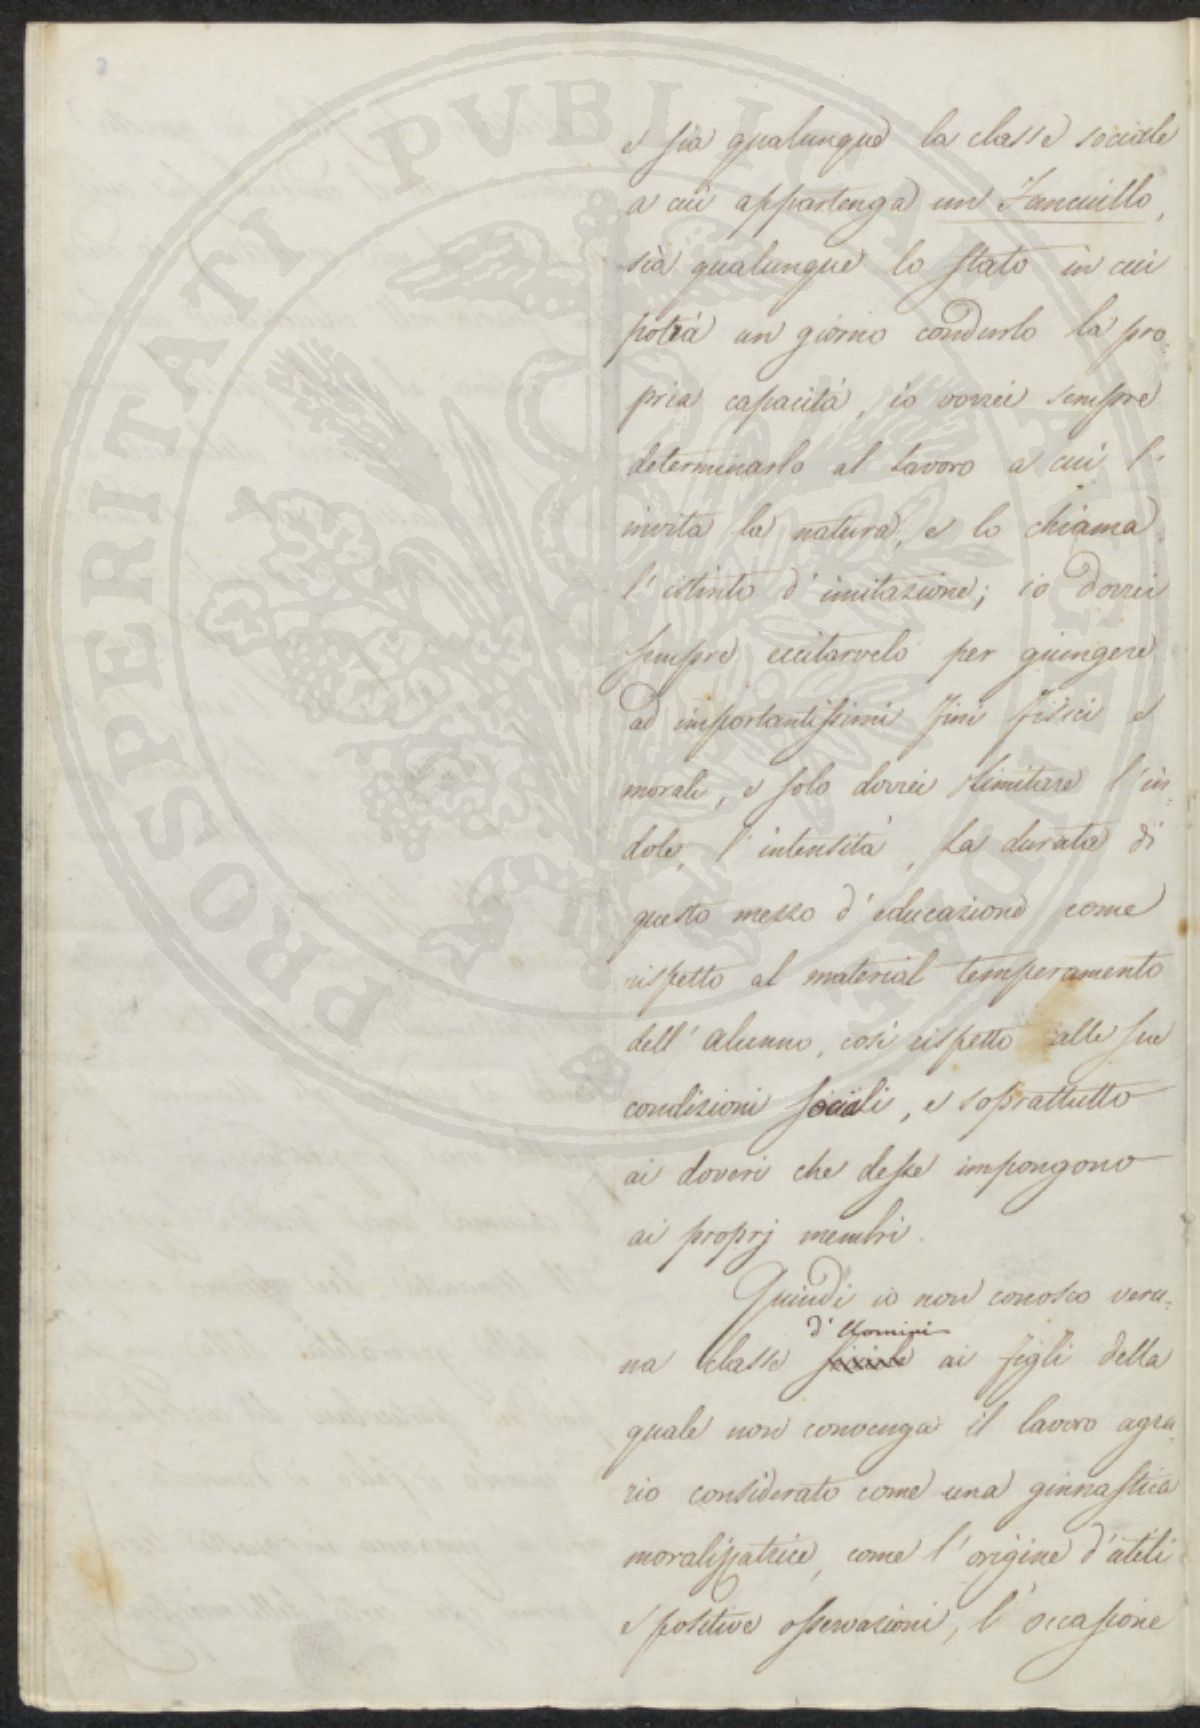 e sia qualunque la classe sociale
a cui appartenga un Fanciullo,
sia qualunque lo stato in cui
potrà un giorno condurlo la pro-
pria capacità, io vorrei sempre
determinarlo al lavoro a cui l'
invita la natura, e lo chiama
l'istinto d'imitazione; io dovrei
sempre eccitarvelo per giungere
ad importantissimi fini fisici e
morali, e solo dovrei limitare l'in-
dole, l'intensità, la durata di
questo mezzo d'educazione come
rispetto al material temperamento
dell'alunno, così rispetto alle sue
condizioni sociali, e soprattutto
ai doveri che desse impongono
ai proprj membri.
Quindi io non conosco veru-
d'Uomini
na classe sociale ai figli della
quale non convenga il lavoro agra-
rio considerato come una ginnastica
moralizzatrice, come l'origine d'utili
e positive osservazioni, l'occasione
PROSPERITATI PVBLICAE